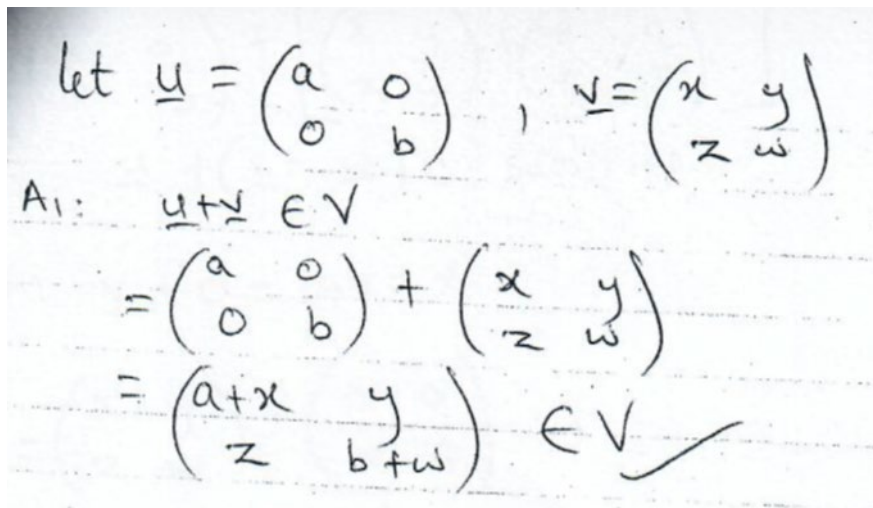 let u = (a 0
0 b) , v = (x y
z w)
A1: u+v ∈ V
= (a 0
0 b) + (x y
z w)
= (a+x y
z b+w) ∈ V ✓